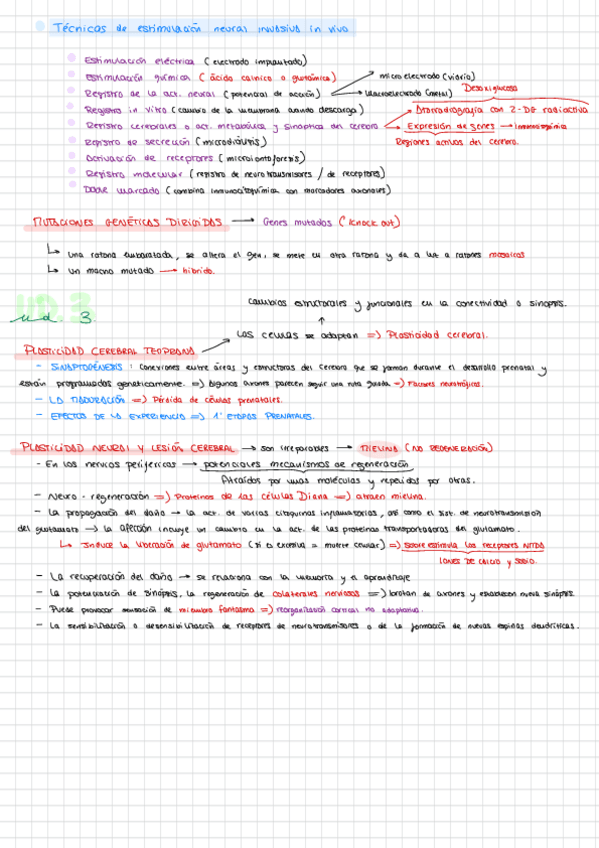 Técnicas de estimulación neural invasiva in vivo
Estimulación eléctrica (electrodo implantado)
Estimulación química (ácido cainico o glutámico)
microelectrodo (vidrio)
Registro de la act. neural (potencial de acción)
Macroelectrodo (metal)
Desoxiglucosa
Registro in vitro (cambio de la membrana cuando descarga)
Autorradiografía con 2-DG radiactiva
Registro cerebrales o act. metabólica y sináptica del cerebro
Expresión de genes → inmunoquímica
Registro de secreción (microdiálisis)
Regiones activas del cerebro.
Activación de receptores (microiontoforesis)
Registro molecular (registro de neurotransmisores / de receptores)
Doble marcado (combina inmunocitoquímica con marcadores axonales)
MUTACIONES GENÉTICAS DIRIGIDAS → Genes mutados (Knock out)
↳ una ratona embarazada, se altera el gen, se mete en otra ratona y da a luz a ratones mosaicos
↳ un macho mutado → híbrido.
UD.3
ud. 3.
Cambios estructurales y funcionales en la conectividad o sinapsis.
Las células se adaptan => Plasticidad cerebral.
PLASTICIDAD CEREBRAL TEMPRANA
- SINAPTOGÉNESIS : conexiones entre áreas y estructuras del cerebro que se forman durante el desarrollo prenatal y
están programadas genéticamente. => Algunos axones parecen seguir una ruta guiada => Factores neurotróficos.
- LA MADURACIÓN => Pérdida de células prenatales.
- EFECTOS DE LA EXPERIENCIA => 1ª ETAPAS PRENATALES.
PLASTICIDAD NEURAL Y LESIÓN CEREBRAL → son irreparables → MIELINA (NO REGENERACIÓN)
- En los nervios periféricos → potenciales mecanismos de regeneración
Atraídos por unas moléculas y repelidos por otras.
- Neuro-regeneración => Proteínas de las células Diana => atraen mielina.
- La propagación del daño → la act. de varias citoquinas inflamatorias, así como el sist. de neurotransmisión
del glutamato → la afección incluye un cambio en la act. de las proteínas transportadoras del glutamato.
↳ Induce la liberación de glutamato (si es excesiva = muerte celular) => sobre estimula los receptores NMDA
IONES DE CALCIO y SODIO.
- La recuperación del daño → se relaciona con la memoria y el aprendizaje
- La potenciación de sinapsis, la regeneración de colaterales nerviosos => brotan de axones y establecen nueva sinapsis.
- Puede provocar sensación de miembro fantasma => reorganización cortical no adaptativa.
- La sensibilización o desensibilización de receptores de neurotransmisores o de la formación de nuevas espinas dendríticas.